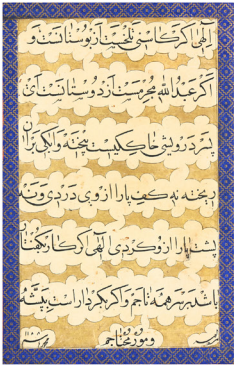 الهی اگر کاسنی تلخست از بوستانست و
اگر عبدالله مجرمست از دوستانست الهی
پندر درویشی خاکیست بیخته و آبکی بران
ریخته نه کف پا را از وی دردی و نه
پشت پا را ازو گردی الهی اگر کار بگفتار
باشد بر سر همه تاجم و اگر بکردار است به پشه
و مور محتاجم